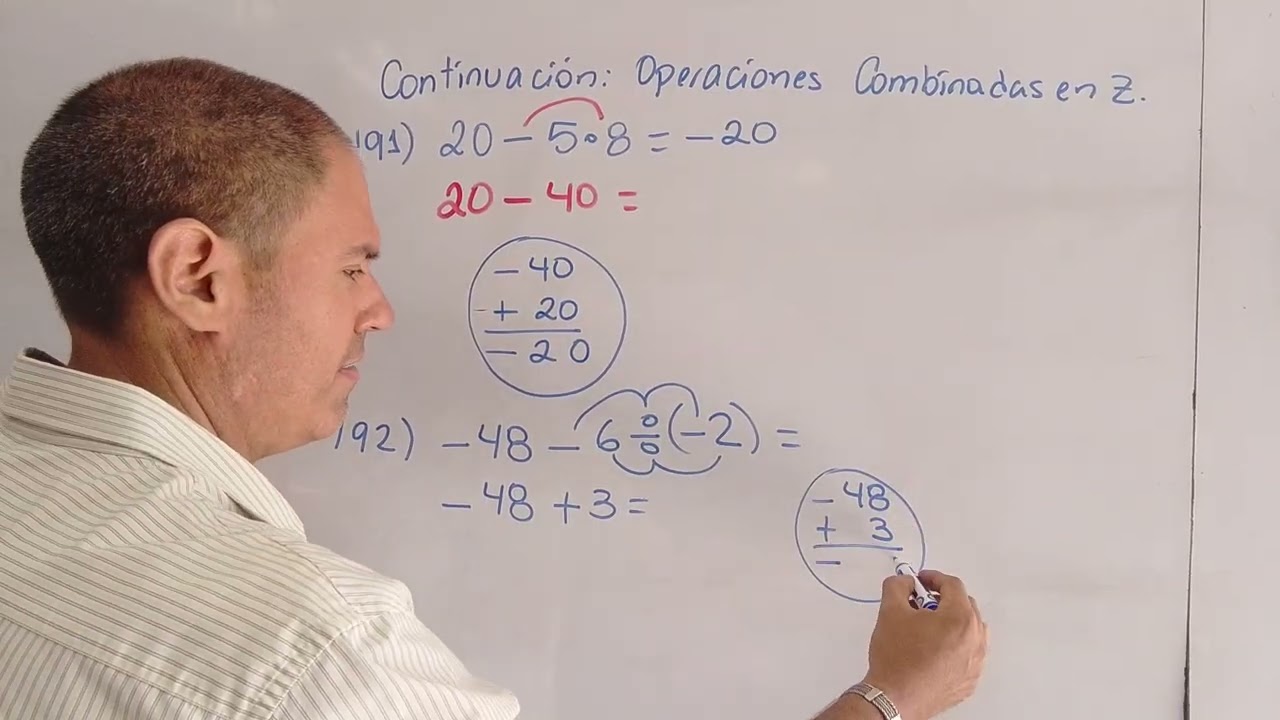 Continuación: Operaciones Combinadas en Z.
191) 20 - 5·8 = -20
20 - 40 =
- 40
+ 20
- 20
192) -48 - 6 ÷ (-2) =
-48 + 3 =
- 48
+ 3
-